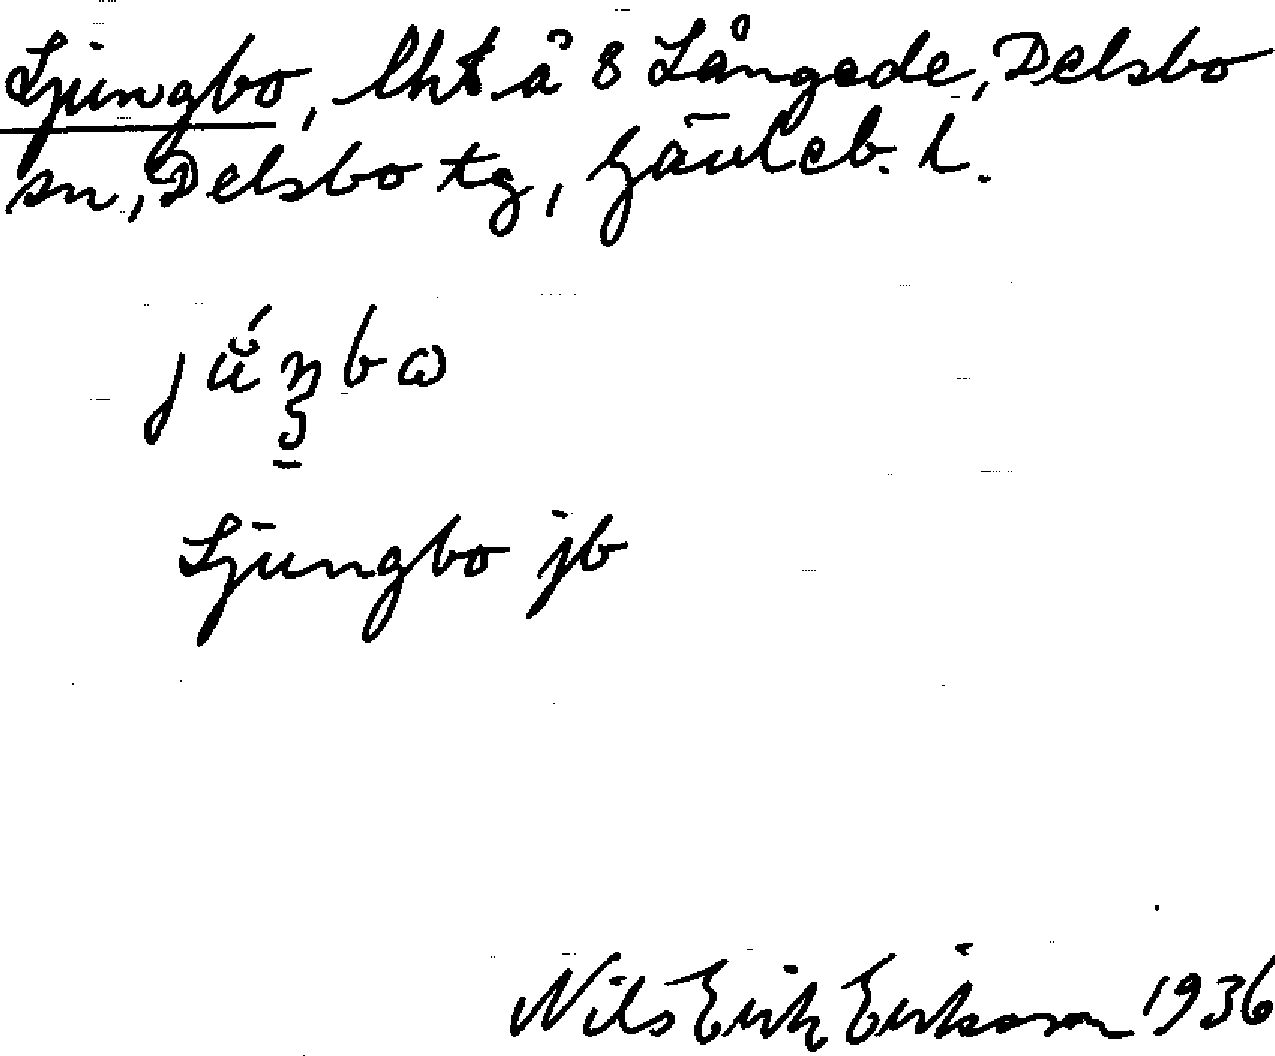 Ljungbo, lht å 8 Långede, Delsbo
sn, Delsbo tg, Gävleb. l.
Ljungbo jb
Nils Erik Eriksson 1936